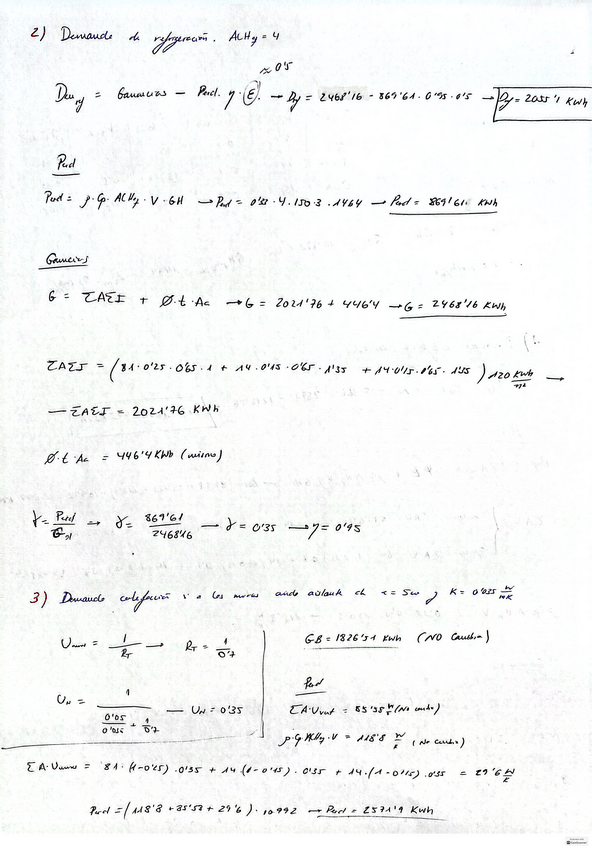 2) Demanda de refrigeración. ACHy = 4
≈ 0'5
Dem ry = Ganancias - Perd. η · Ɛ. → Dy = 2468'16 - 869'61 · 0'95 · 0'5 → Dy = 2055'1 KWh
Perd
Perd = ρ · Cp · ACHy · V · GH → Perd = 0'33 · 4 · 150 · 3 · 1464 → Perd = 869'61 KWh
Ganancias
G = ΣAΣI + Ø · t · Ac → G = 2021'76 + 446'4 → G = 2468'16 KWh
ΣAΣI = (81 · 0'25 · 0'65 · 1 + 14 · 0'15 · 0'65 · 1'35 + 14 · 0'15 · 0'65 · 1'35) 120 KWh/m² →
— ΣAΣI = 2021'76 KWh
Ø · t · Ac = 446'4 KWh (mismo)
γ = Perd/G → γ = 869'61/2468'16 → γ = 0'35 → η = 0'95
3) Demanda calefacción si a los muros aislante de = 5cm y K = 0'035 W/mK
U muro = 1/RT → RT = 1/0'7
UN = 1/(0'05/0'035 + 1/0'7) — UN = 0'35
GB = 1826'51 KWh (NO Cambia)
Perd
ΣA·U vent = 85'55 W/K (No cambia)
ρ · Cp · ACHy · V = 118'8 W/K (No cambia)
ΣA·U muros = 81 · (1-0'25) · 0'35 + 14 · (1-0'15) · 0'35 + 14 · (1-0'15) · 0'35 = 29'6 W/K
Perd = (118'8 + 85'55 + 29'6) · 10'992 → Perd = 2571'9 KWh